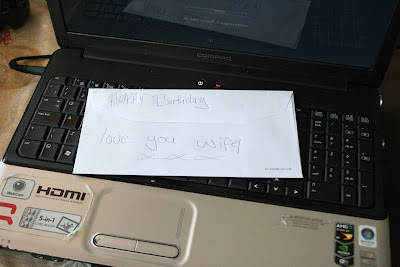 COMPAQ
Happy Birthday
love you wifty
xxx
HDMI
5-in-1
AMD